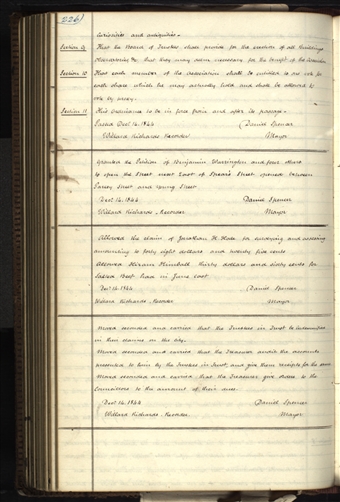 226
curiosities and antiquities.
Section 9 That the Board of Trustees shall provide for the erection of all buildings
Observatories &c that they may deem necessary for the benefit of the Association
Section 10 That each member of the association shall be entitled to one vote for
each share which he may actually hold and shall be allowed to
vote by proxy.
Section 11 This Ordinance to be in force from and after its passage.
Passed Decr 16. 1844 Daniel Spencer
Willard Richards. Recorder Mayor
Granted the Petition of Benjamin Warrington and four others
to open the Street next East of Spears Street between
Parley Street and Young Street
Decr 16. 1844 Daniel Spencer
Willard Richards. Recorder Mayor
Allowed the claim of Jonathan H. Hale for assessing
amounting to forty eight dollars and twenty five cents
Allowed Hiram Kimball thirty dollars and sixty cents for
in June last
Decr 16. 1844 Daniel Spencer
Willard Richards. Recorder Mayor
Moved seconded and carried that the Trustees in Trust be
in their claims on the city.
Moved seconded and carried that the Treasurer audit the accounts
presented to him by the Trustees in Trust, and give them receipts for the same
Moved seconded and carried that the Treasurer give orders to the
Councillors to the amount of their dues.
Decr 16. 1844 Daniel Spencer
Willard Richards. Recorder Mayor